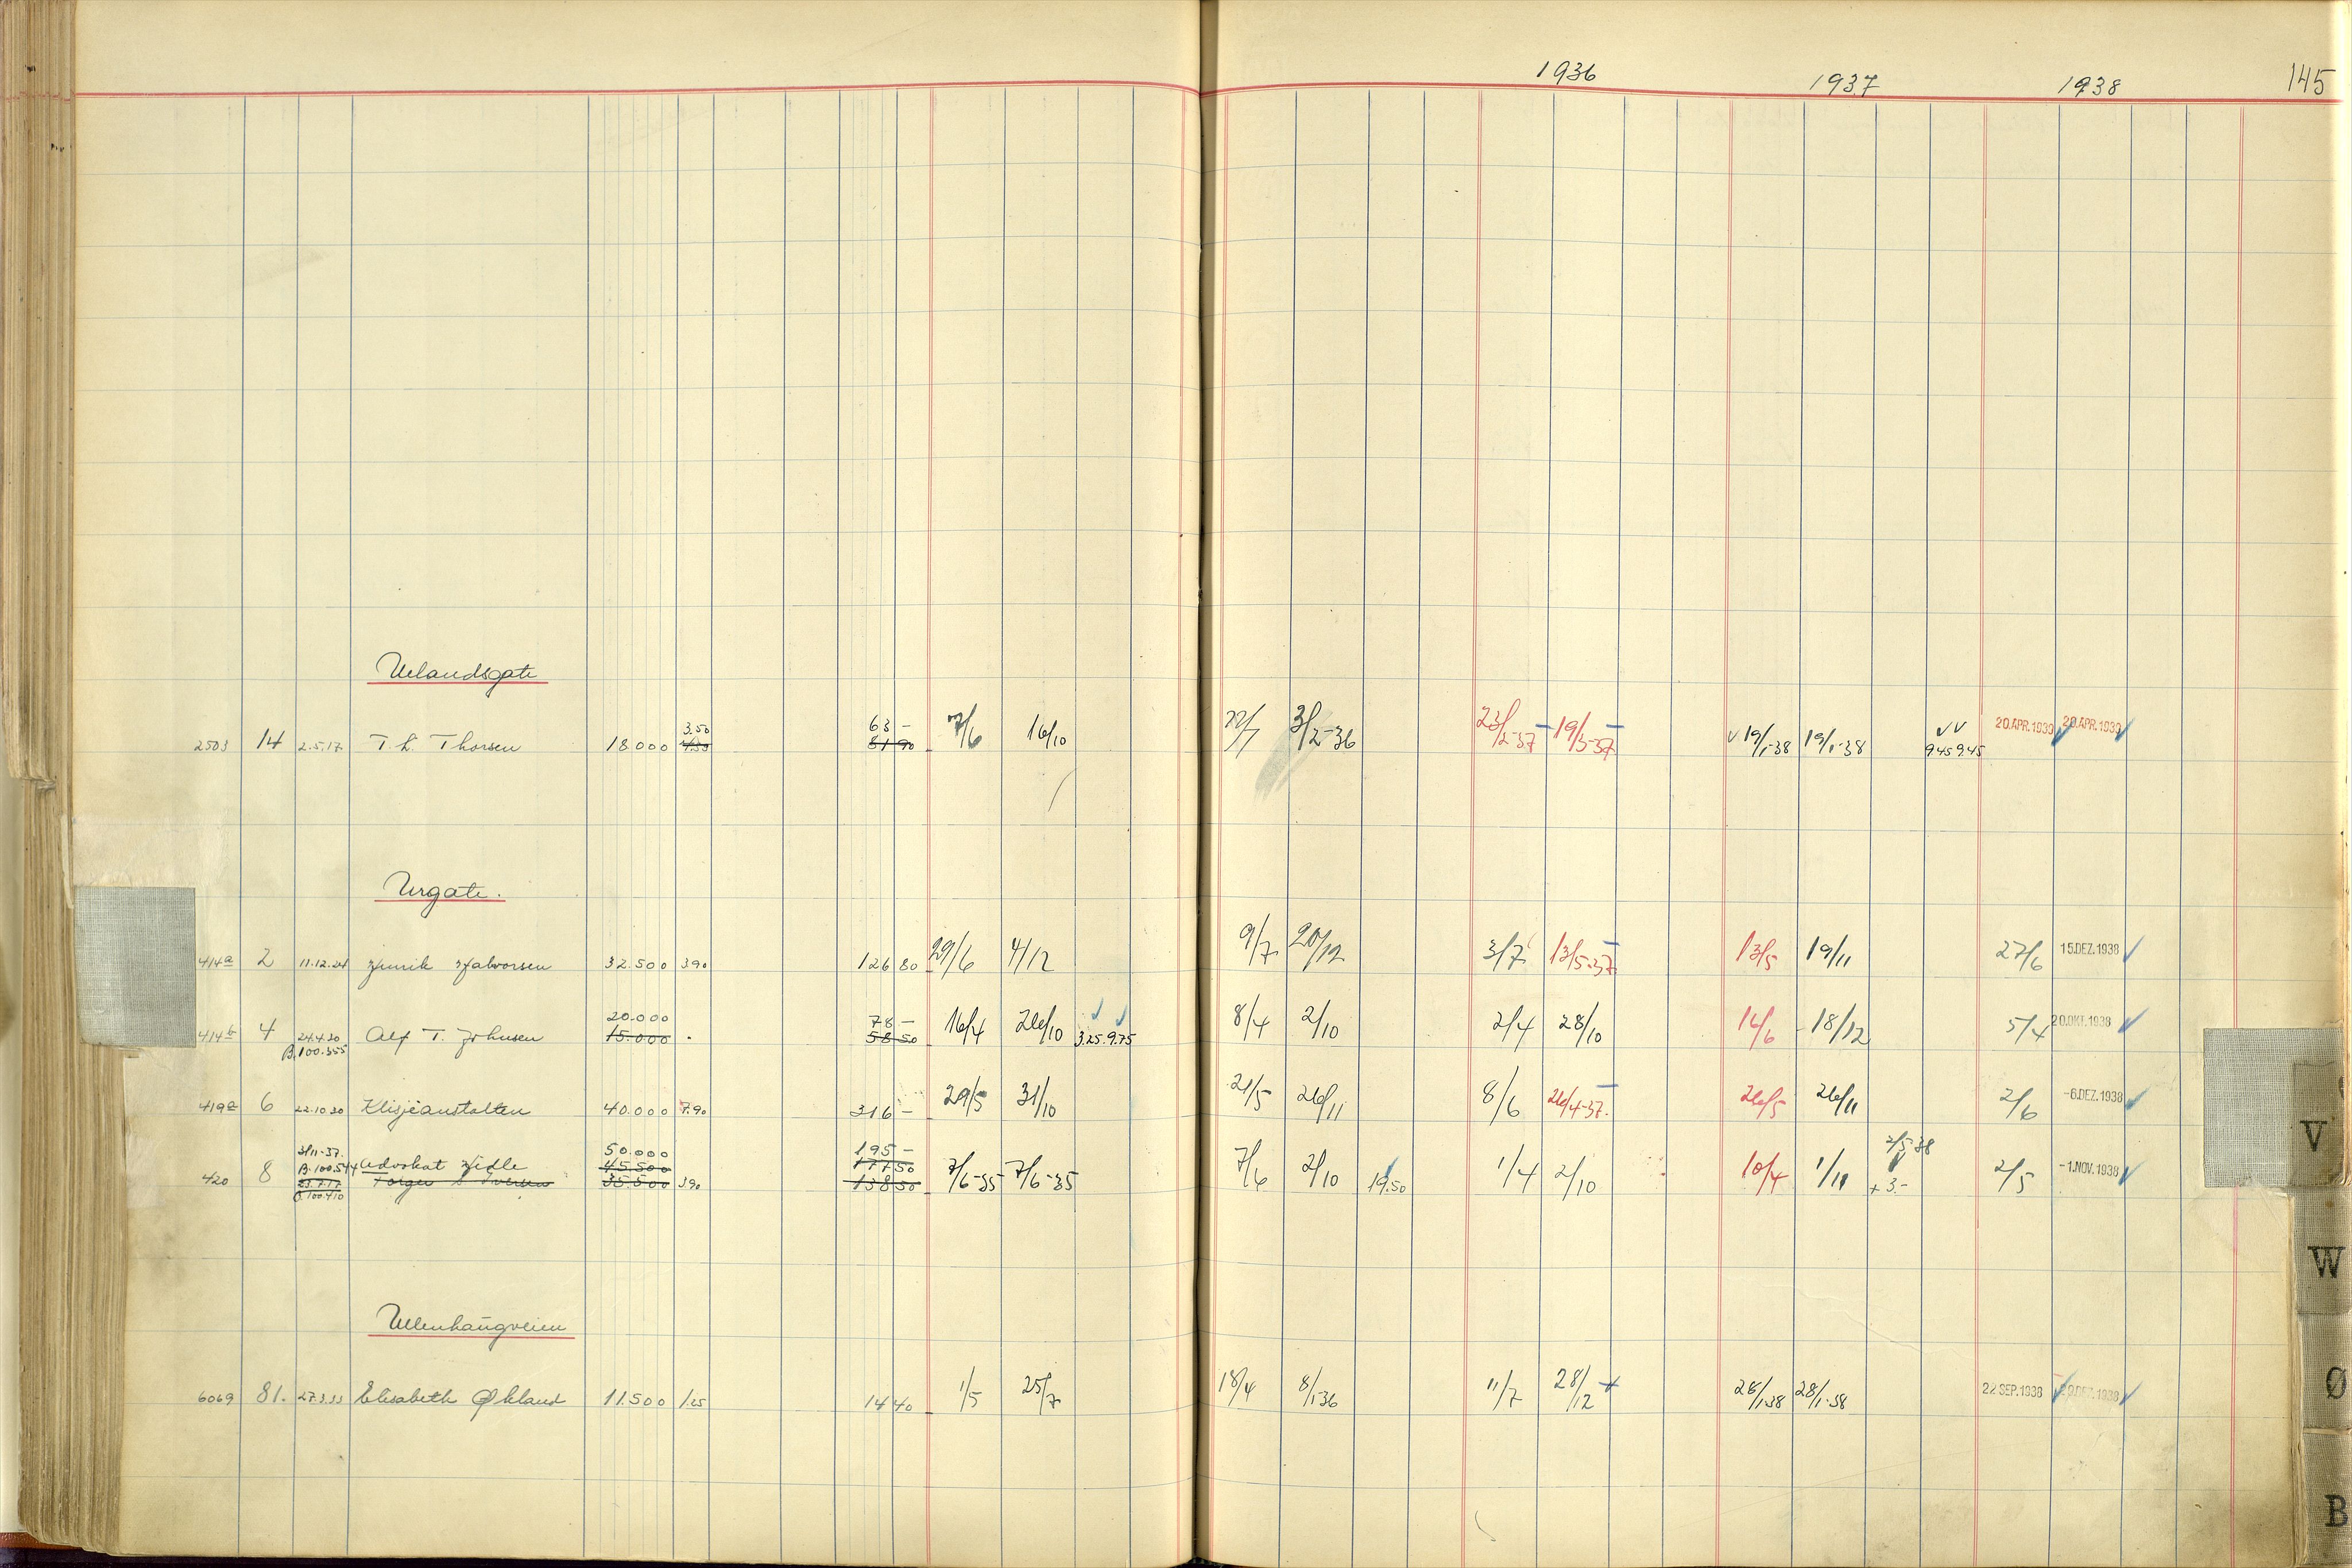 1936 1937 1938 145
Uelandsgate
3.50 63 –
2503 14 2.5.17 T. L. Thorsen 18000 4.55 81 90 7/6 16/10 3/2-36 23/2-37 – 19/3-37 – v 19/1-38 19/1-38 v v 9.45 9.45 20.APR.1939 20.APR.1939
Urgate.
414a 2 11.12.24 Henrik Halvorsen 32.500 3.90 126 80 29/6 4/12 9/7 20/12 3/7 13/5-37 – 13/5 19/11 27/6 15.DEZ.1938
20.000 78 –
414b 4 24.4.30 Alf T. Johnsen 15.000 58 50 16/4 26/10 3.25. 9.75 8/4 2/10 2/4 28/10 16/6 18/12 5/4 20.OKT.1938
B.100.555
419a 6 22.10.30 Klisjéanstalten 40.000 7.90 316 – 29/5 31/10 21/5 26/11 8/6 26/4-37. – 26/5 26/11 2/6 -6.DEZ.1938
3/11-37. 50.000 195 – 2/5-38
B.100.544 Advokat Hidle 45.500 177 50
420 8 23.7.17 Torger Iversen 35.500 3.90 138 50 7/6-35 7/6-35 7/6 2/10 19.50 1/4 2/10 10/4 1/11 + 3.- 2/5 -1.NOV.1938
B.100.410
Ullenhaugveien
6069 81. 27.3.33 Elisabeth Økland 11.500 1.25 14 40 1/5 25/7 18/4 8/1-36 11/7 28/12 + 28/1-38 28/1-38 22.SEP.1938
V
W
Ø
B